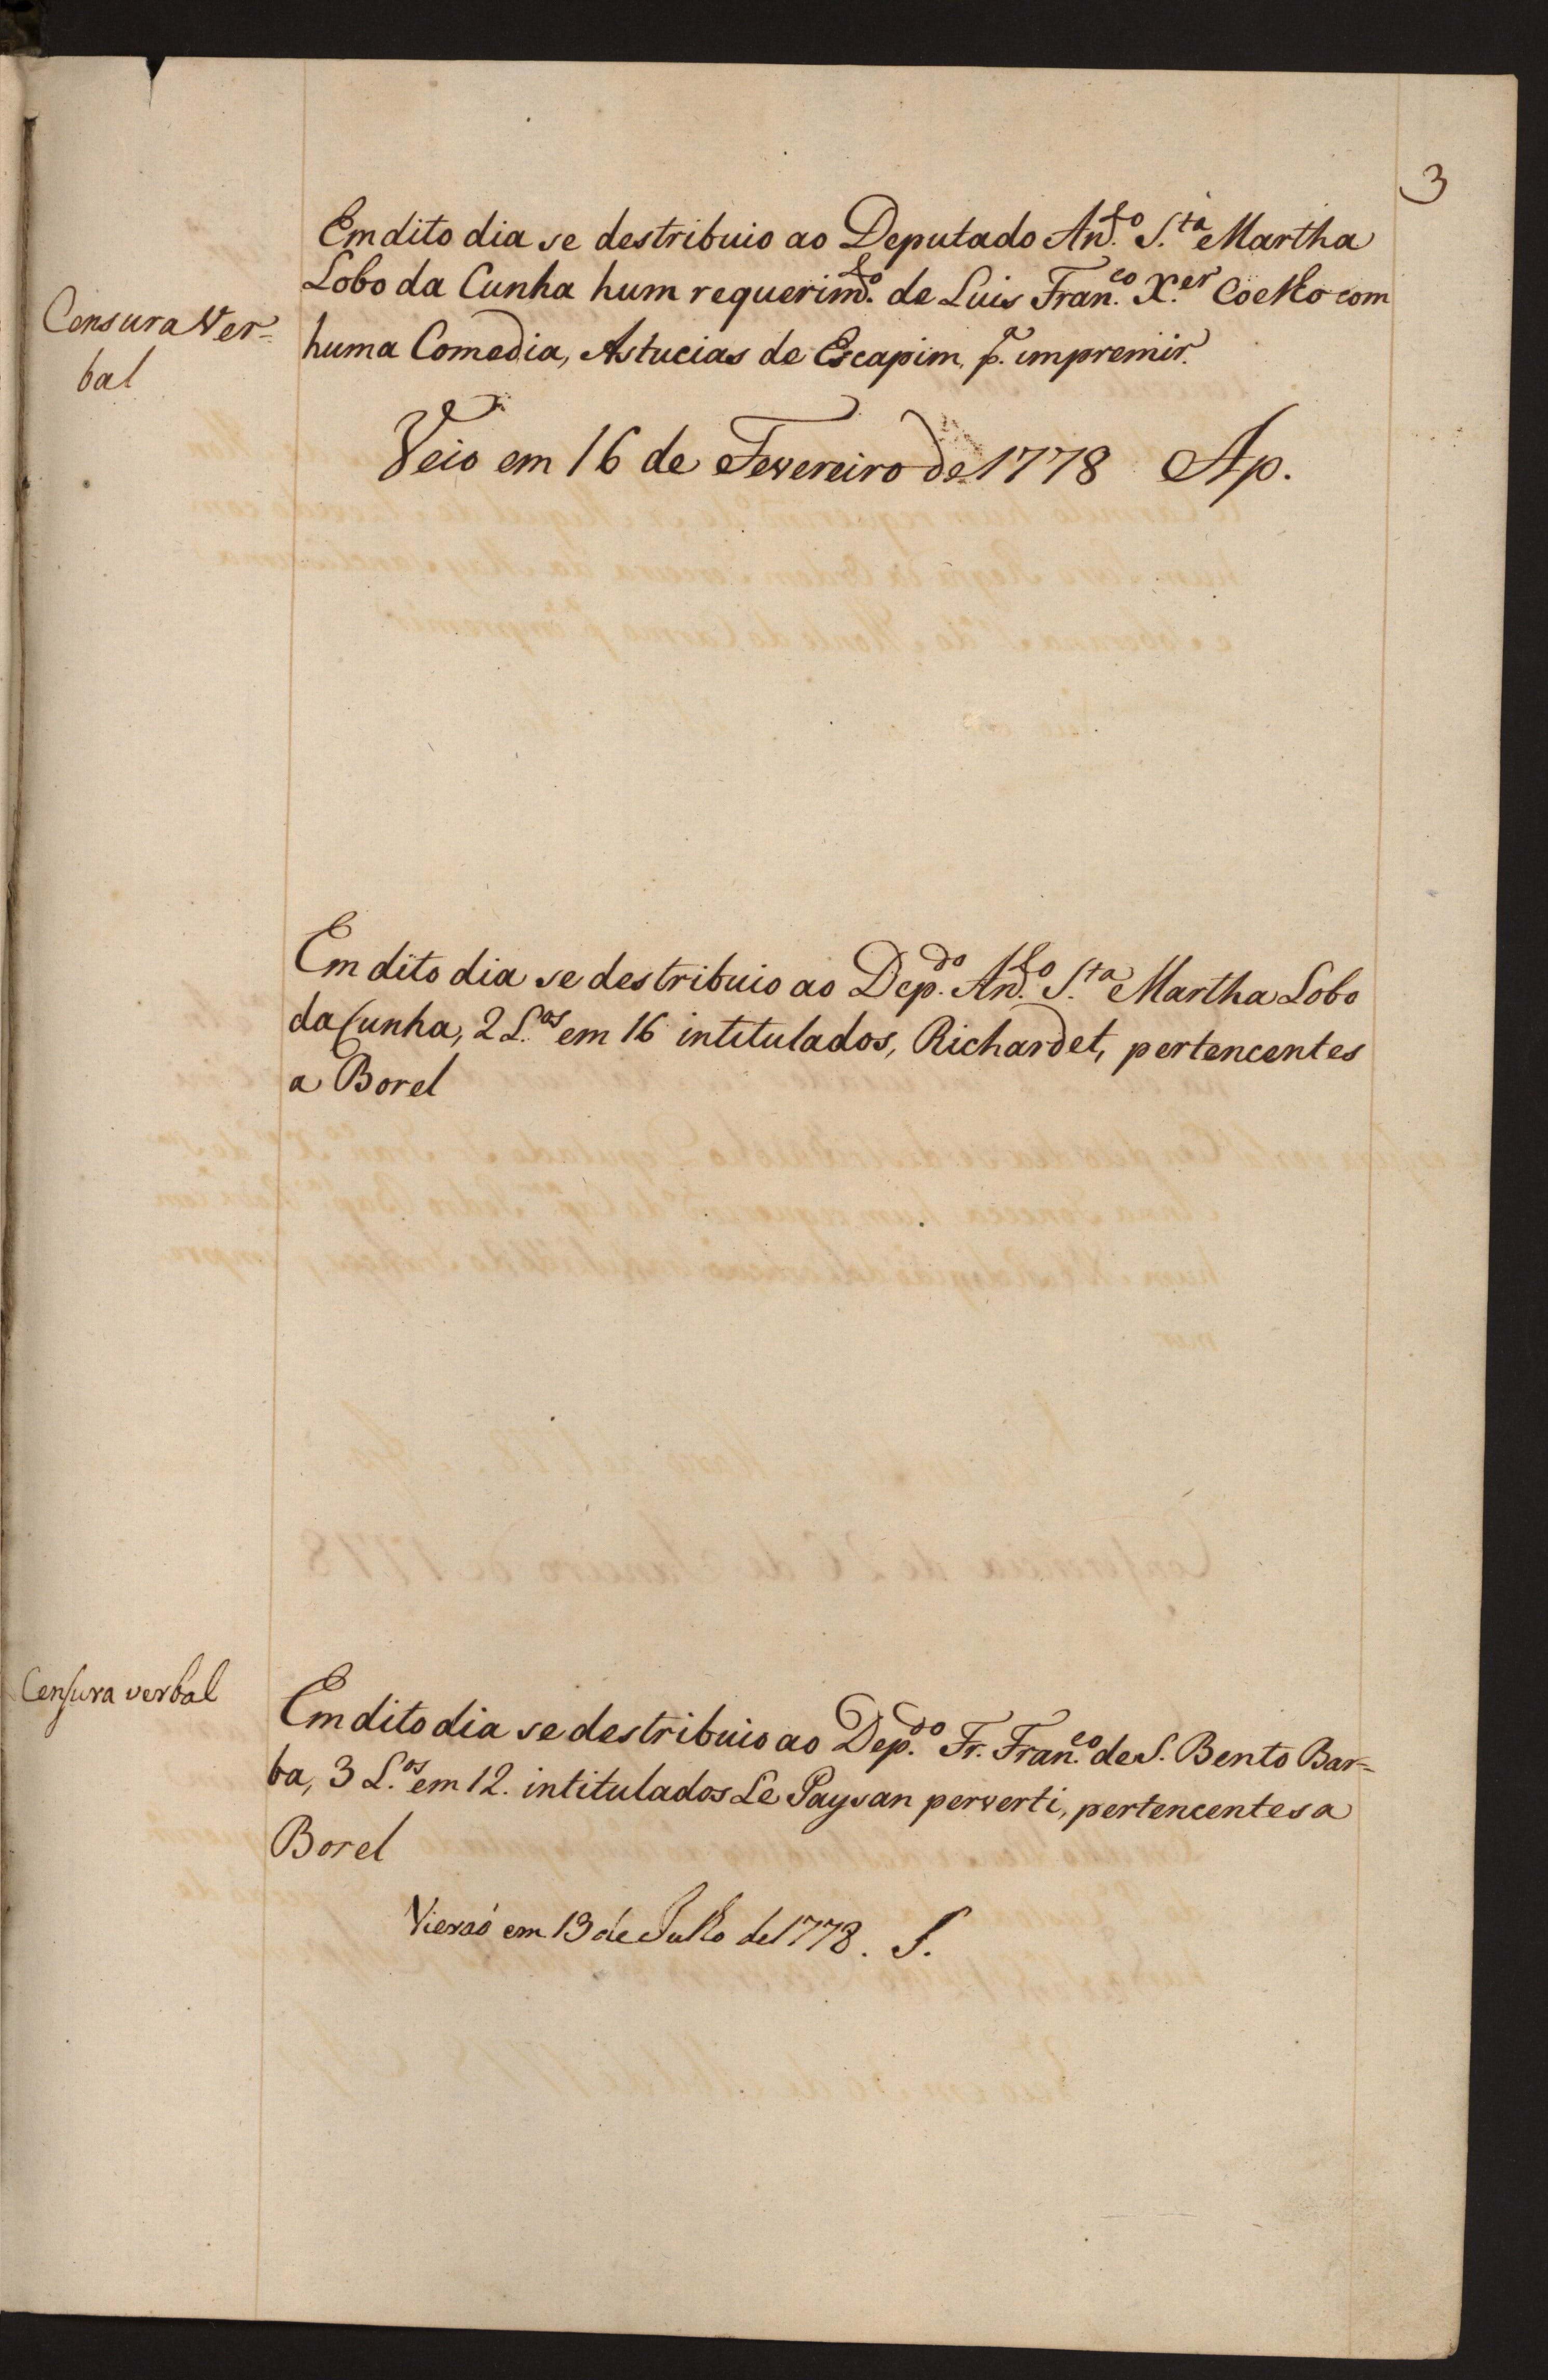 3
Em dito dia se destribuio ao Deputado Anto. S.ta Martha
Lobo da Cunha hum requerimto. de Luis Fran.co X.er Coelho com
Censura Ver=
bal
huma Comedia, Astucias de Escapim, p.a impremir.
Veio em 16 de Fevereiro de 1778 Ap.
Em dito dia se destribuio ao Dep.do Anto. S.ta Martha Lobo
da Cunha, 2 L.os em 16 intitulados, Richardet, pertencentes
a Borel
Censura verbal
Em dito dia se destribuio ao Dep.do Fr. Fran.co de S. Bento Bar=
ba, 3 L.os em 12. intitulados Le Paysan perverti, pertencentes a
Borel
Vieraõ em 13 de Julho de 1778. S.